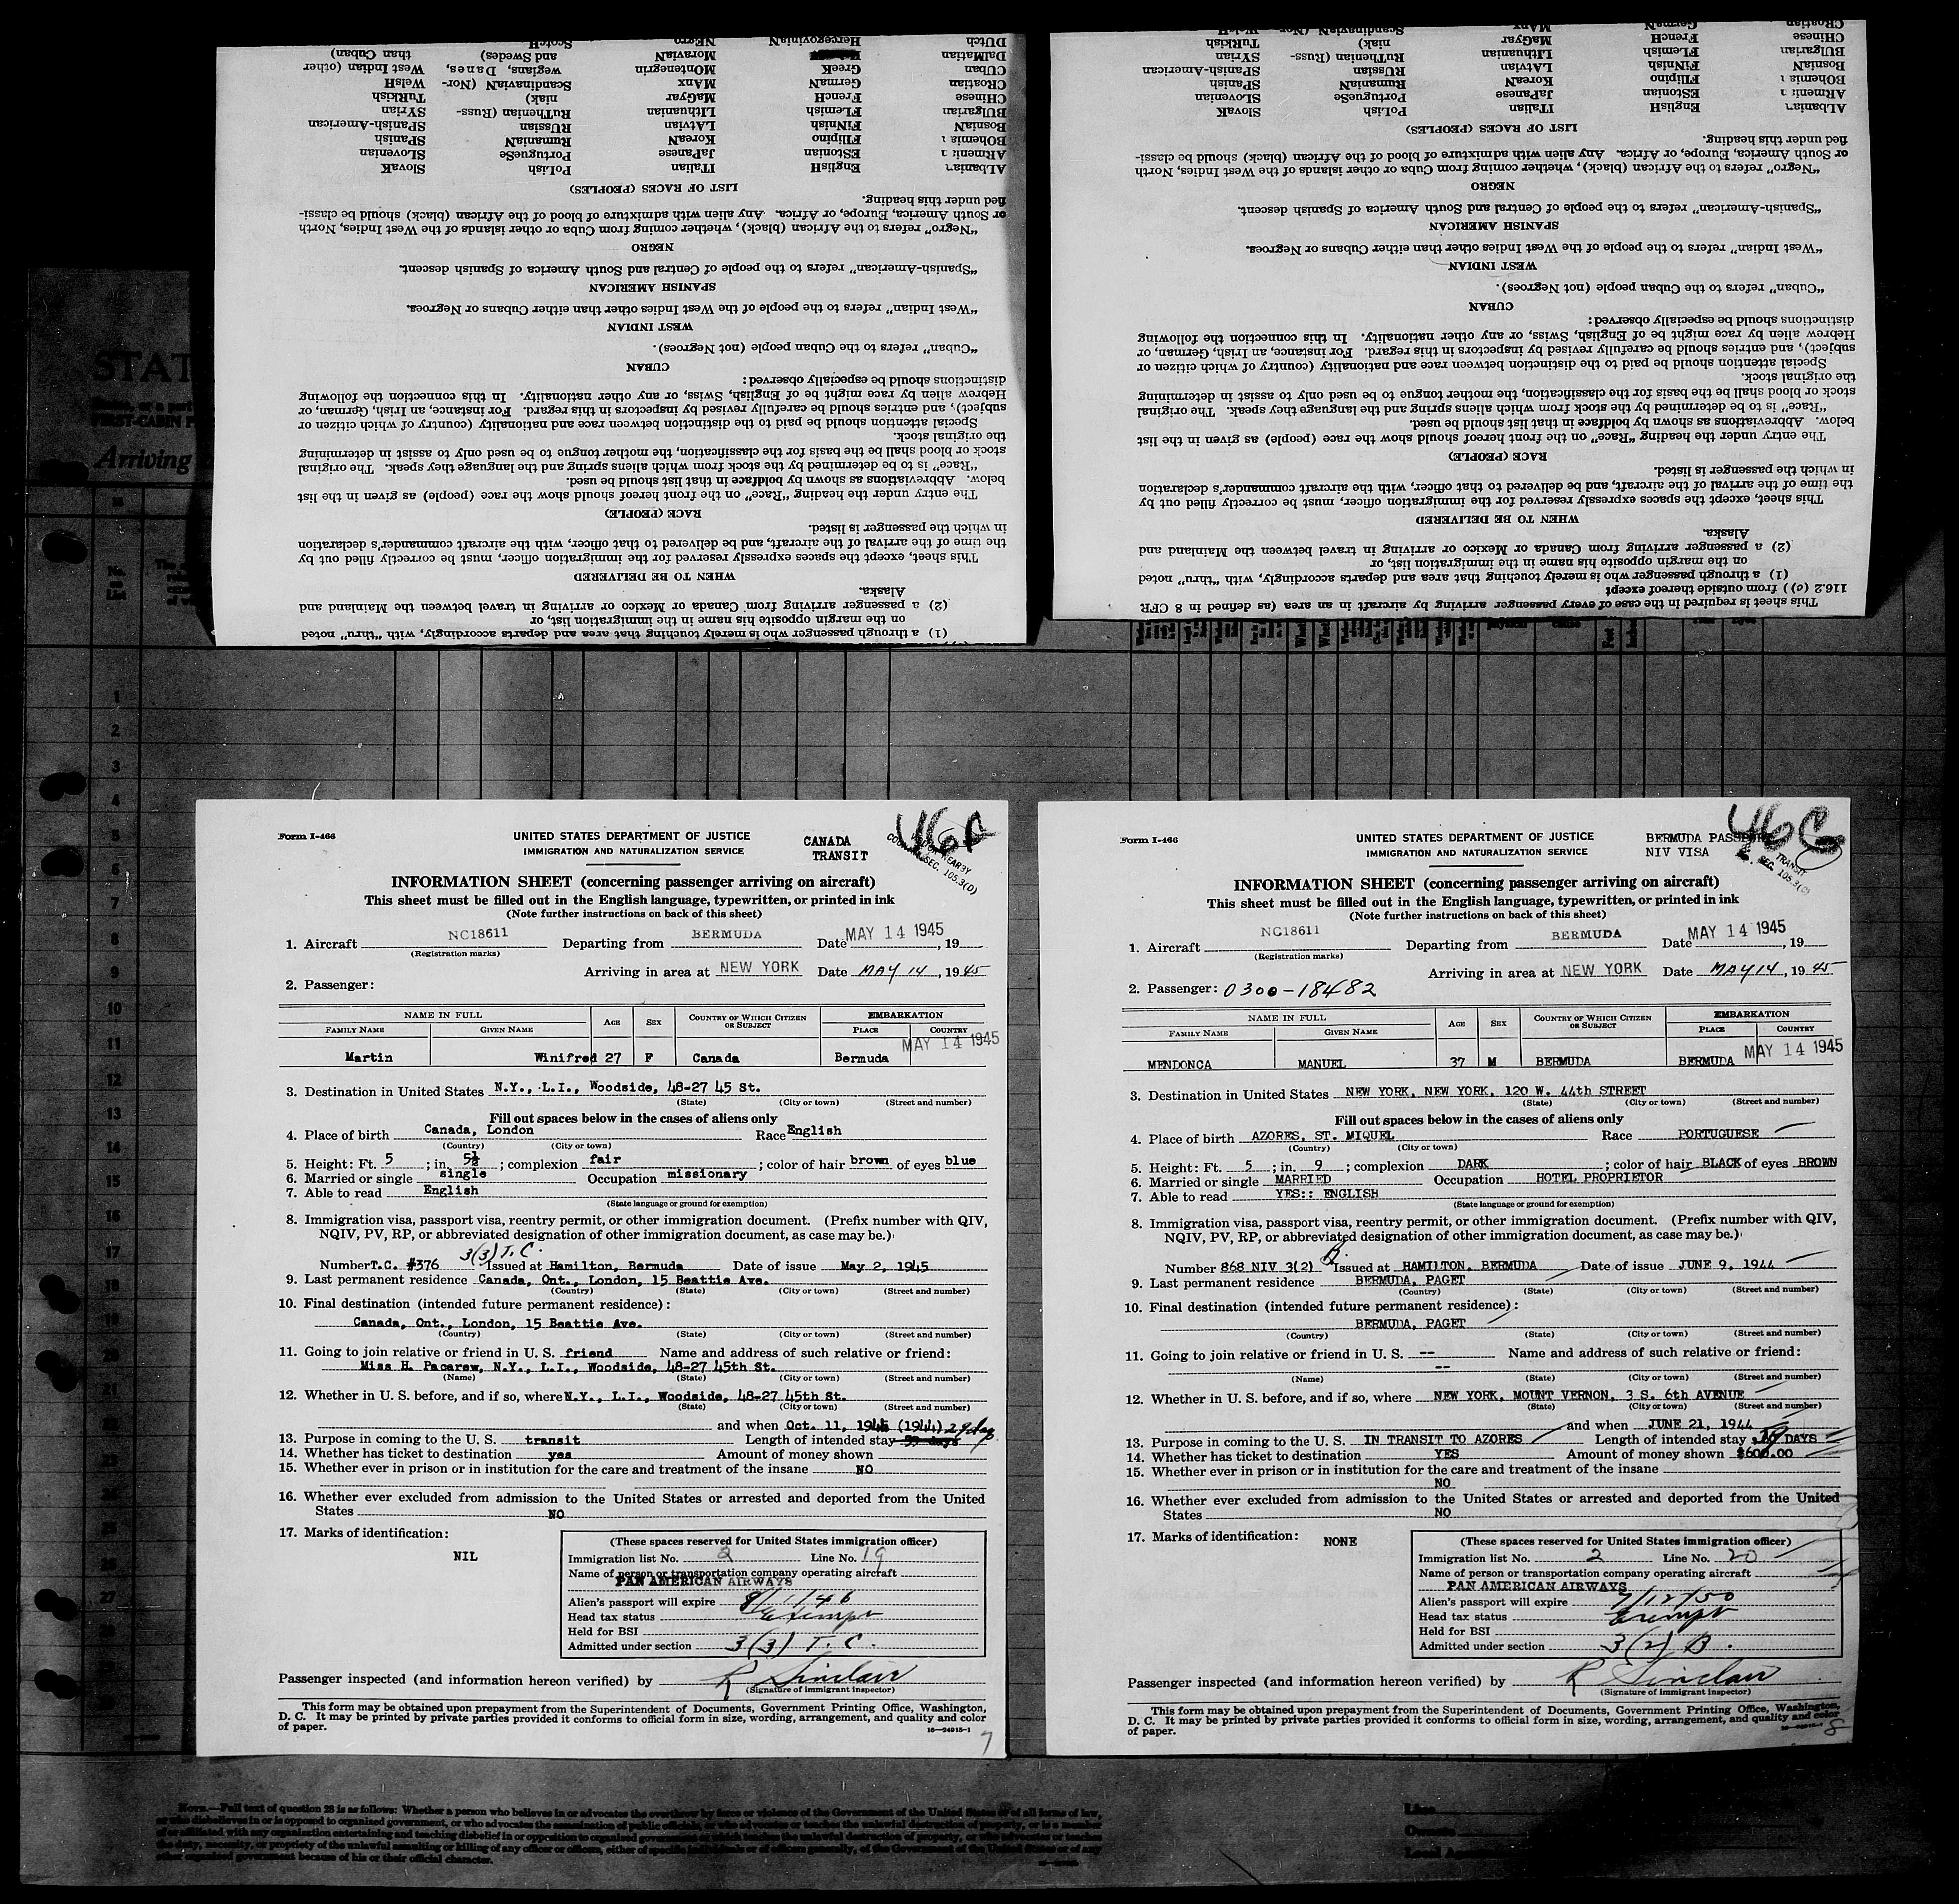 SCotcH
NEGRO
HercegoviniaN
DUtcH
than Cuban)
and Swedes)
MOraviaN
DalMatian
West Indian (other
wegians, Danes,
MOntenegrin
GreeK
CUbaN
WelsH
ScandinaviaN (Nor-
MAnx
GermaN
CROatian
TurKish
niak)
MaGyar
FrencH
CHinese
SYrian
RuThenian (Russ-
LIthuanian
FLemish
BUlgarian
SPanish-American
RUssian
LAtvian
FINnish
BosniaN
SPanish
RumaniaN
KoreaN
FIlipino
BOhemia
SLOvenian
PortugueSe
JaPanese
EStonian
ARmeni
SlovaK
PoLish
ITalian
EngliSH
ALbania
LIST OF RACES (PEOPLES)
fied under this heading.
or South America, Europe, or Africa. Any alien with admixture of blood of the African (black) should be classi-
"Negro" refers to the African (black), whether coming from Cuba or other islands of the West Indies, North
NEGRO
"Spanish-American" refers to the people of Central and South America of Spanish descent.
SPANISH AMERICAN
"West Indian" refers to the people of the West Indies other than either Cubans or Negroes.
WEST INDIAN
"Cuban" refers to the Cuban people (not Negroes).
CUBAN
distinctions should be especially observed:
Hebrew alien by race might be of English, Swiss, or any other nationality. In this connection the following
subject), and entries should be carefully revised by inspectors in this regard. For instance, an Irish, German, or
Special attention should be paid to the distinction between race and nationality (country of which citizen or
the original stock.
stock or blood shall be the basis for the classification, the mother tongue to be used only to assist in determining
"Race" is to be determined by the stock from which aliens spring and the language they speak. The original
below. Abbreviations as shown by boldface in that list should be used.
The entry under the heading "Race" on the front hereof should show the race (people) as given in the list
RACE (PEOPLE)
in which the passenger is listed.
the time of the arrival of the aircraft, and be delivered to that officer, with the aircraft commander's declaration
This sheet, except the spaces expressly reserved for the immigration officer, must be correctly filled out by
WHEN TO BE DELIVERED
Alaska.
(2) a passenger arriving from Canada or Mexico or arriving in travel between the Mainland and
on the margin opposite his name in the immigration list, or
(1) a through passenger who is merely touching that area and departs accordingly, with "thru" noted
TurKish
niak)
MaGyar
FrencH
CHinese
SYrian
RuThenian (Russ-
LIthuanian
FLemish
BUlgarian
SPanish-American
RUssian
LAtvian
FINnish
BosniaN
SPanish
RumaniaN
KoreaN
FIlipino
BOhemia
SLOvenian
PortugueSe
JaPanese
EStonian
ARmeni
SlovaK
PoLish
ITalian
EngliSH
ALbania
LIST OF RACES (PEOPLES)
fied under this heading.
or South America, Europe, or Africa. Any alien with admixture of blood of the African (black) should be classi-
"Negro" refers to the African (black), whether coming from Cuba or other islands of the West Indies, North
NEGRO
"Spanish-American" refers to the people of Central and South America of Spanish descent.
SPANISH AMERICAN
"West Indian" refers to the people of the West Indies other than either Cubans or Negroes.
WEST INDIAN
"Cuban" refers to the Cuban people (not Negroes).
CUBAN
distinctions should be especially observed:
Hebrew alien by race might be of English, Swiss, or any other nationality. In this connection the following
subject), and entries should be carefully revised by inspectors in this regard. For instance, an Irish, German, or
Special attention should be paid to the distinction between race and nationality (country of which citizen or
the original stock.
stock or blood shall be the basis for the classification, the mother tongue to be used only to assist in determining
"Race" is to be determined by the stock from which aliens spring and the language they speak. The original
below. Abbreviations as shown by boldface in that list should be used.
The entry under the heading "Race" on the front hereof should show the race (people) as given in the list
RACE (PEOPLE)
in which the passenger is listed.
the time of the arrival of the aircraft, and be delivered to that officer, with the aircraft commander's declaration
This sheet, except the spaces expressly reserved for the immigration officer, must be correctly filled out by
WHEN TO BE DELIVERED
Alaska.
(2) a passenger arriving from Canada or Mexico or arriving in travel between the Mainland and
on the margin opposite his name in the immigration list, or
(1) a through passenger who is merely touching that area and departs accordingly, with "thru" noted
116.2 (c)) from outside thereof except
This sheet is required in the case of every passenger arriving by aircraft in an area (as defined in 8 CFR
STAT
Arriving
Form I-466
UNITED STATES DEPARTMENT OF JUSTICE
IMMIGRATION AND NATURALIZATION SERVICE
CANADA
TRANSIT
46
SEC. 105.3(D)
INFORMATION SHEET (concerning passenger arriving on aircraft)
This sheet must be filled out in the English language, typewritten, or printed in ink
(Note further instructions on back of this sheet)
1. Aircraft NC18611 Departing from BERMUDA Date MAY 14 1945, 19
(Registration marks)
Arriving in area at NEW YORK Date MAY 14, 1945
2. Passenger:
NAME IN FULL AGE SEX COUNTRY OF WHICH CITIZEN OR SUBJECT EMBARKATION
FAMILY NAME GIVEN NAME PLACE COUNTRY
MAY 14 1945
Martin Winifred 27 F Canada Bermuda
3. Destination in United States N.Y., L.I., Woodside, 48-27 45 St.
(State) (City or town) (Street and number)
Fill out spaces below in the cases of aliens only
4. Place of birth Canada, London Race English
(Country) (City or town)
5. Height: Ft. 5 ; in. 5½ ; complexion fair ; color of hair brown of eyes blue
6. Married or single single Occupation missionary
7. Able to read English
(State language or ground for exemption)
8. Immigration visa, passport visa, reentry permit, or other immigration document. (Prefix number with QIV,
NQIV, PV, RP, or abbreviated designation of other immigration document, as case may be.)
3(3) T.C.
Number T.C. #376 Issued at Hamilton, Bermuda Date of issue May 2, 1945
9. Last permanent residence Canada, Ont., London, 15 Beattie Ave.
(Country) (State) (City or town) (Street and number)
10. Final destination (intended future permanent residence):
Canada, Ont., London, 15 Beattie Ave.
(Country) (State) (City or town) (Street and number)
11. Going to join relative or friend in U. S. friend Name and address of such relative or friend:
Miss H. Pacarew, N.Y., L.I., Woodside, 48-27 45th St.
(Name) (State) (City or town) (Street and number)
12. Whether in U. S. before, and if so, where N.Y., L.I., Woodside, 48-27 45th St.
(State) (City or town) (Street and number)
and when Oct. 11, (1944) 29 days
13. Purpose in coming to the U. S. transit Length of intended stay
14. Whether has ticket to destination yes Amount of money shown
15. Whether ever in prison or in institution for the care and treatment of the insane NO
16. Whether ever excluded from admission to the United States or arrested and deported from the United
States NO
17. Marks of identification:
NIL
(These spaces reserved for United States immigration officer)
Immigration list No. 2 Line No. 19
Name of person or transportation company operating aircraft
PAN AMERICAN AIRWAYS
Alien's passport will expire 8/1/46
Head tax status Exempt
Held for BSI
Admitted under section 3(3) T.C.
Passenger inspected (and information hereon verified) by R Sinclair
(Signature of immigrant inspector)
This form may be obtained upon prepayment from the Superintendent of Documents, Government Printing Office, Washington,
D. C. It may be printed by private parties provided it conforms to official form in size, wording, arrangement, and quality and color
of paper.
16—24915-1
7
Form I-466
UNITED STATES DEPARTMENT OF JUSTICE
IMMIGRATION AND NATURALIZATION SERVICE
BERMUDA PASSPORT
NIV VISA
46
TRANSIT
SEC. 105.3(
INFORMATION SHEET (concerning passenger arriving on aircraft)
This sheet must be filled out in the English language, typewritten, or printed in ink
(Note further instructions on back of this sheet)
1. Aircraft NC18611 Departing from BERMUDA Date MAY 14 1945, 19
(Registration marks)
Arriving in area at NEW YORK Date MAY 14, 1945
2. Passenger: 0300-18482
NAME IN FULL AGE SEX COUNTRY OF WHICH CITIZEN OR SUBJECT EMBARKATION
FAMILY NAME GIVEN NAME PLACE COUNTRY
MENDONCA MANUEL 37 M BERMUDA BERMUDA MAY 14 1945
3. Destination in United States NEW YORK, NEW YORK, 120 W. 44th STREET
(State) (City or town) (Street and number)
Fill out spaces below in the cases of aliens only
4. Place of birth AZORES, ST. MIQUEL Race PORTUGUESE
(Country) (City or town)
5. Height: Ft. 5 ; in. 9 ; complexion DARK ; color of hair BLACK of eyes BROWN
6. Married or single MARRIED Occupation HOTEL PROPRIETOR
7. Able to read YES:: ENGLISH
(State language or ground for exemption)
8. Immigration visa, passport visa, reentry permit, or other immigration document. (Prefix number with QIV,
NQIV, PV, RP, or abbreviated designation of other immigration document, as case may be.)
B.
Number 868 NIV 3(2) Issued at HAMILTON, BERMUDA Date of issue JUNE 9, 1944
9. Last permanent residence BERMUDA, PAGET
(Country) (State) (City or town) (Street and number)
10. Final destination (intended future permanent residence):
BERMUDA, PAGET
(Country) (State) (City or town) (Street and number)
11. Going to join relative or friend in U. S. -- Name and address of such relative or friend:
--
(Name) (State) (City or town) (Street and number)
12. Whether in U. S. before, and if so, where NEW YORK, MOUNT VERNON, 3 S. 6th AVENUE
(State) (City or town) (Street and number)
and when JUNE 21, 1944
13. Purpose in coming to the U. S. IN TRANSIT TO AZORES Length of intended stay DAYS
14. Whether has ticket to destination YES Amount of money shown $600.00
15. Whether ever in prison or in institution for the care and treatment of the insane
NO
16. Whether ever excluded from admission to the United States or arrested and deported from the United
States NO
17. Marks of identification: NONE
(These spaces reserved for United States immigration officer)
Immigration list No. 2 Line No. 20
Name of person or transportation company operating aircraft
PAN AMERICAN AIRWAYS
Alien's passport will expire 7/12/50
Head tax status Exempt
Held for BSI
Admitted under section 3(2) B.
Passenger inspected (and information hereon verified) by R Sinclair
(Signature of immigrant inspector)
This form may be obtained upon prepayment from the Superintendent of Documents, Government Printing Office, Washington,
D. C. It may be printed by private parties provided it conforms to official form in size, wording, arrangement, and quality and color
of paper.
8
NOTE.—Full text of question 28 is as follows: Whether a person who believes in or advocates the overthrow by force or violence of the Government of the United States or of all forms of law,